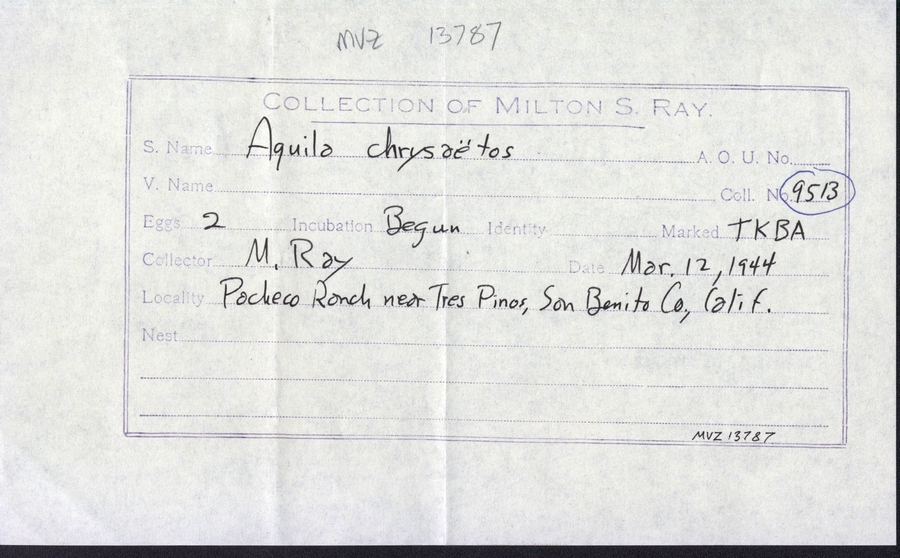 MVZ 13787
COLLECTION OF MILTON S. RAY.
S. Name Aquila chrysaëtos A. O. U. No.
V. Name Coll. No. 9513
Eggs 2 Incubation Begun Identity Marked TKBA
Collector M. Ray Date Mar. 12, 1944
Locality Pacheco Ranch near Tres Pinos, San Benito Co., Calif.
Nest
MVZ 13787